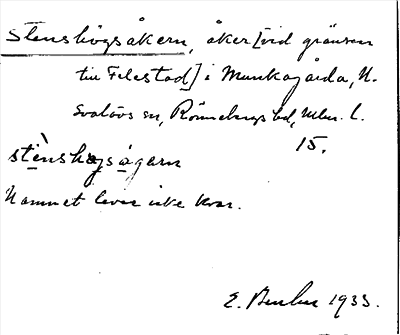 Stenshögsåkern, åker [vid gränsen
till Felestad] i Munkagårda, N.
Svalövs sn, Rönnebergs hd, Mlm. l.
15.
stènshøgsågarn
Namnet lever icke kvar.
E. 1933.